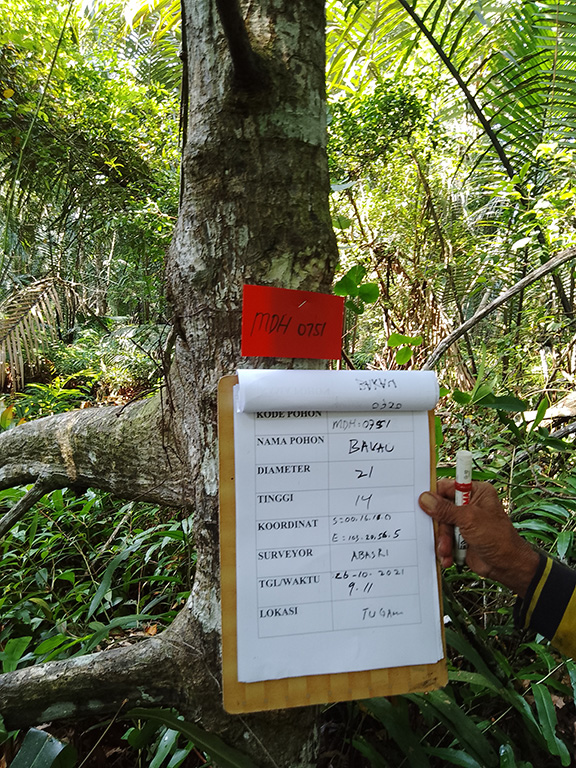 MDH 0751
0320
KODE POHON MDH=0751
NAMA POHON BAKAU
DIAMETER 21
TINGGI 14
KOORDINAT S=00.16.16.0
E=103.20.56.5
SURVEYOR ABASRI
TGL/WAKTU 26-10-2021
9.11
LOKASI